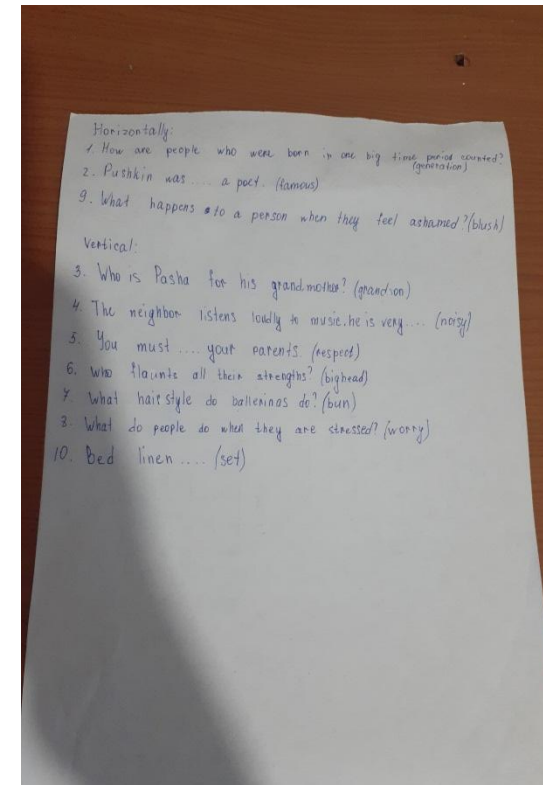 Horizontally:
1. How are people who were born in one big time period counted?
(generation)
2. Pushkin was .... a poet. (famous)
9. What happens to a person when they feel ashamed? (blush)
Vertical:
3. Who is Pasha for his grandmother? (grandson)
4. The neighbor listens loudly to music, he is very .... (noisy)
5. You must .... your parents (respect)
6. Who flaunts all their strengths? (bighead)
7. What hair style do ballerinas do? (bun)
8. What do people do when they are stressed? (worry)
10. Bed linen .... (set)